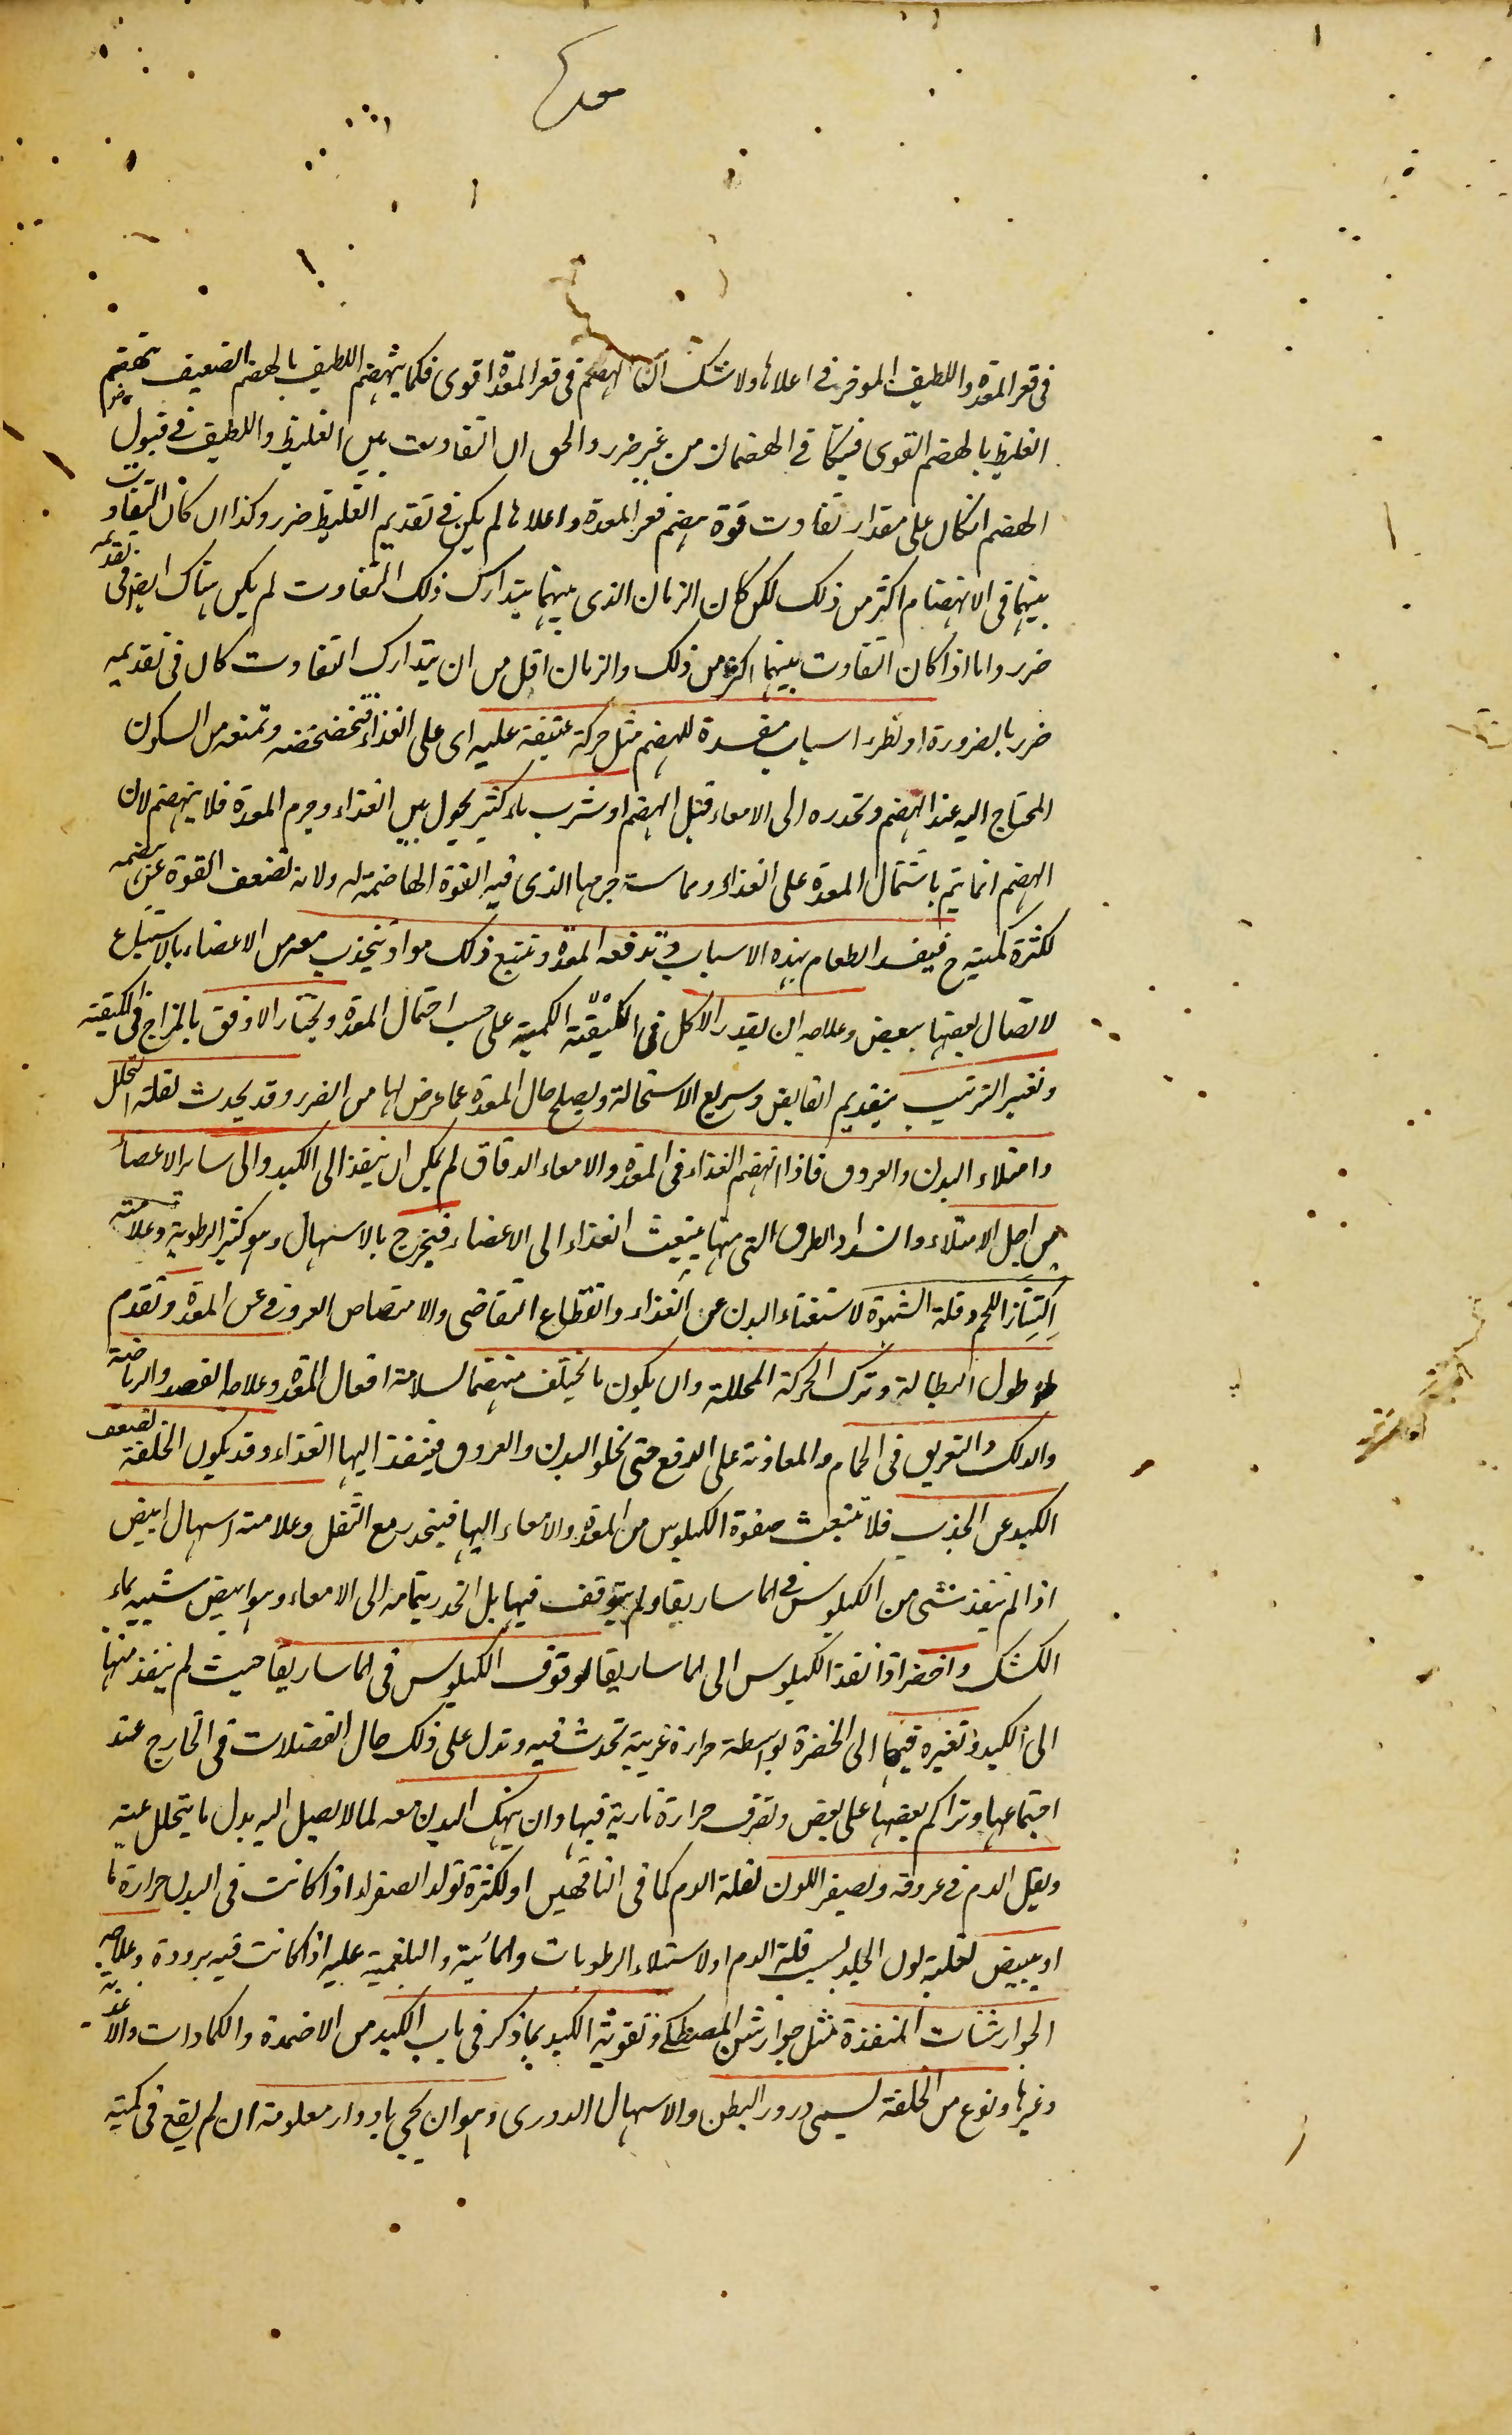 معدہ
فى قعر المعدة واللطيف الموفر فى اعلاها ولا شك ان الهضم فى قعر المعدة اقوى فكما ينهضم اللطيف بالهضم الضعيف ينهضم
الغليظ بالهضم القوى فيتكافى الهضمان من غير ضرر والحق ان التفاوت بين الغليظ واللطيف فى قبول
الهضم ان كان على مقدار تفاوت قوة هضم قعر المعدة واعلاها لم يكن فى تقديم الغليظ ضرر وكذا ان كان التفاوت
بينهما فى الانهضام اكثر من ذلك لكن كان الزمان الذى بينهما يتدارك ذلك التفاوت لم يكن هناك ايضا فى تقديمه
ضرر واما اذا كان التفاوت بينهما اكثر من ذلك والزمان اقل من ان يتدارك التفاوت كان فى تقديمه
ضرر بالضرورة او لطرد اسباب مفسدة للهضم مثل حركة عنيفة عليه اى على الغذاء فتخضخضه وتمنعه من السكون
المحتاج اليه عند الهضم وتحدره الى الامعاء قبل الهضم او شرب ماء كثير يحول بين الغذاء وجرم المعدة فلا ينهضم لان
الهضم انما يتم باشتمال المعدة على الغذاء ومماسة جرمها الذى فيه القوة الهاضمة له ولانه تضعف القوة عن هضمه
لكثرة كميته ح فيفسد الطعام بهذه الاسباب وتدفعه المعدة وتتبع ذلك مواد تنجذب معه من الاعضاء بالاستتباع
لاتصال بعضها ببعض وعلاجه ان يقدر الاكل فى الكمية على حسب احتمال المعدة ويختار الاوفق بالمزاج فى الكيفية
وتغير الترتيب بتقديم القابض وسريع الاستحالة ويصلح حال المعدة عما عرض لها من الضرر وقد يحدث لقلة التحلل
وامتلاء البدن والعروق فاذا انهضم الغذاء فى المعدة والامعاء الدقاق لم يمكن ان ينفذ الى الكبد والى ساير الاعضاء
من اجل الامتلاء وانسداد الطرق التى منها ينبعث الغذاء الى الاعضاء فيخرج بالاسهال وهو كثير الرطوبة وعلامته
اكتناز اللحم وقلة الشهوة لاستغناء البدن عن الغذاء وانقطاع التقاضى والامتصاص العروقى عن المعدة وتقدم
طول البطالة وترك الحركة المحللة وان يكون ما يختلف منهضما لسلامة افعال المعدة وعلاجه الفصد والرياضة
والدلك والتعريق فى الحمام والمعاونة على الدفع حتى تخلو البدن والعروق فينفذ اليها الغذاء وقد يكون الخلفة لضعف
الكبد عن الجذب فلا تنبعث صفوة الكيلوس من المعدة والامعاء اليها فينحدر مع الثفل وعلامته اسهال ابيض
اذا لم ينفذ شىء من الكيلوس فى الماساريقا ولم يتوقف فيها بل انحدر بتمامه الى الامعاء وهو ابيض شبيه بماء
الكشك واخضر اذا نفذ الكيلوس الى الماساريقا لوقوف الكيلوس فى الماساريقا حيث لم ينفذ منها
الى الكبد وتغيره فيها الى الخضرة بواسطة حرارة غريبة تحدث فيه وتدل على ذلك حال الفضلات فى الخارج عند
اجتماعها وتراكم بعضها على بعض وتصرف حرارة نارية فيها وان ينهك البدن معه لما لا يصل اليه بدل ما يتحلل عنه
ويقل الدم فى عروقه ويصفر اللون لقلة الدم كما فى الناقهين او لكثرة تولد الصفراء اذا كانت فى البدن حرارة ما
او يبيض لغلبة لون الجلد بسبب قلة الدم او لاستيلاء الرطوبات والمائية والبلغمية عليه اذا كانت فيه برودة وعلاجه
الجوارشنات المنفذة مثل جوارشن المصطكى وتقوية الكبد بما ذكر فى باب الكبد من الاضمدة والكمادات والاغذية
وغيرها ونوع من الخلفة يسمى درور البطن والاسهال الدورى وهو ان يجى بادوار معلومة ان لم يقع فى كمية